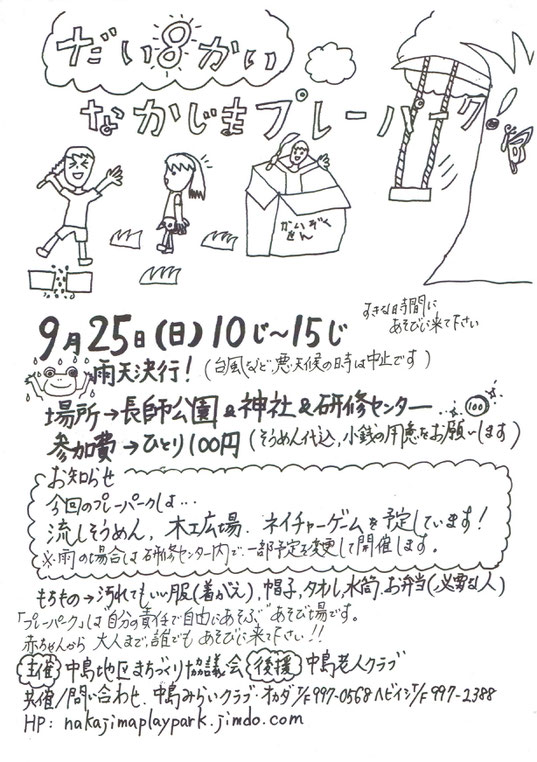 だい8かい
なかじまプレーパーク
かいぞくせん
9月25日(日)10じ〜15じ
すきな時間に
あそびに来て下さい
雨天決行!(台風など、悪天候の時は中止です)
場所→長師公園&神社&研修センター
100
参加費→ひとり100円(そうめん代込、小銭の用意をお願いします)
お知らせ
今回のプレーパークは…
流しそうめん、木工広場、ネイチャーゲームを予定しています!
※雨の場合は研修センター内で、一部予定を変更して開催します。
もちもの→汚れてもいい服(着がえ)、帽子、タオル、水筒、お弁当(必要な人)
「プレーパーク」は自分の責任で自由にあそぶ"あそび場です。
赤ちゃんから大人まで、誰でもあそびに来て下さい!!
主催 中島地区まちづくり協議会 後援 中島老人クラブ
共催/問い合わせ、中島みらいクラブ・オカダT/F997-0568 ヘビイシT/F997-2388
HP: nakajimaplaypark.jimdo.com